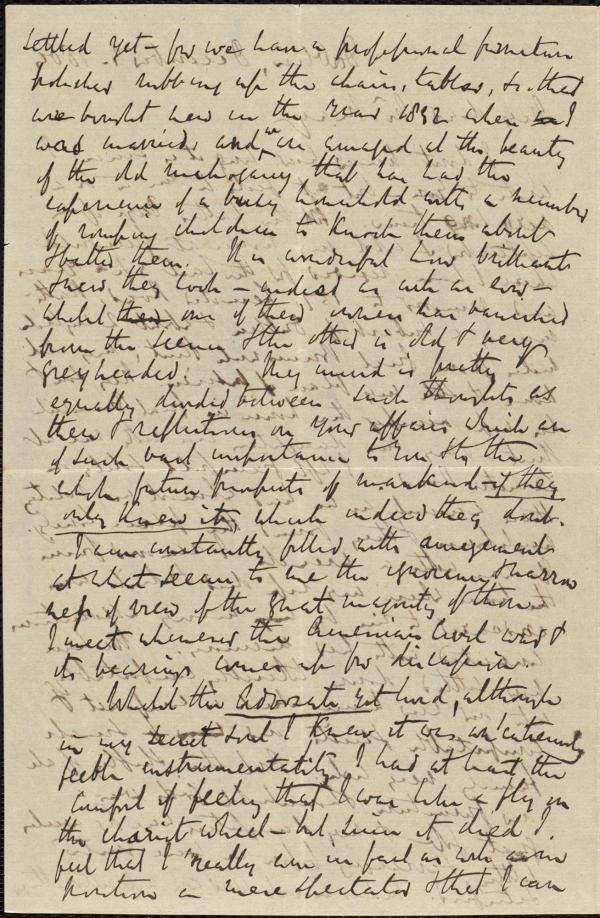 settled yet – for we have a professional furniture
polisher rubbing up the chairs, tables, &c. that
we bought new in the year 1832 when I
was married, and we are amazed at the beauty
of the old mahogany that has had the
experience of a busy household with a number
of romping children to knock them about
& batter them. It is wonderful how brilliant
& new they look – indeed as with as ever –
whilst one of their owners has vanished
from the scene & the other is old & very
greyheaded. My mind is pretty
equally divided between such thoughts as
these & reflections on your affairs which are
of such vast importance to you & to the
whole future prospects of mankind – if they
only knew it, which indeed they don't.
I am constantly filled with amazement
at what seems to me the ignorance & narrow
ness of view of the great majority of those
I meet whenever the American Civil war &
its bearings comes up for discussion.
Whilst the Advocate yet lived, although
in my secret soul I knew it was an extremely
feeble instrumentality, I had at least the
comfort of feeling that I was like a fly on
the chariot wheel – but since it died I
feel that I really am in fact as in
position a mere spectator & that I can